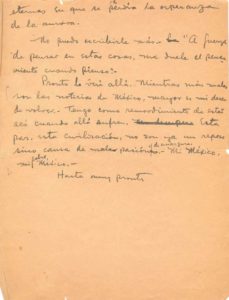 eternas en que se perdía la esperanza
de la aurora.
No puedo escribirle más. "A fuerza
de pensar en estas cosas, me duele el pensa
miento cuando pienso".
Pronto le veré allá. Mientras más malas
son las noticias de México, mayor es mi deseo
de volver. Tengo como remordimiento de estar
acá cuando allá sufren. Esta
paz, esta civilización, no son ya un reposo
sino causa de malas pasiones. Mi México,
mi México.
Hasta muy pronto